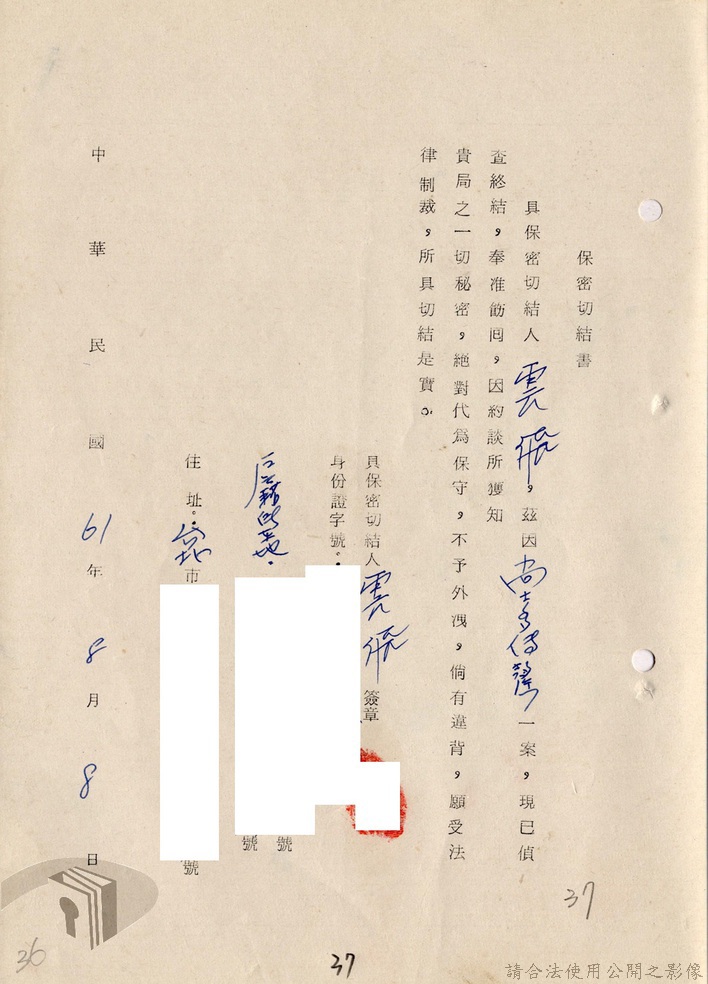 保密切結書
具保密切結人雲飛，茲因尚士秀傅鶯一案，現已偵
查終結，奉准飭回，因約談所獲知
貴局之一切秘密，絕對代為保守，不予外洩，倘有違背，願受法
律制裁，所具切結是實。
具保密切結人雲飛簽章
身份證字號：
號
戶籍所在地：
號
住址：台北市
號
中華民國61年8月8日
37
37
36
請合法使用公開之影像